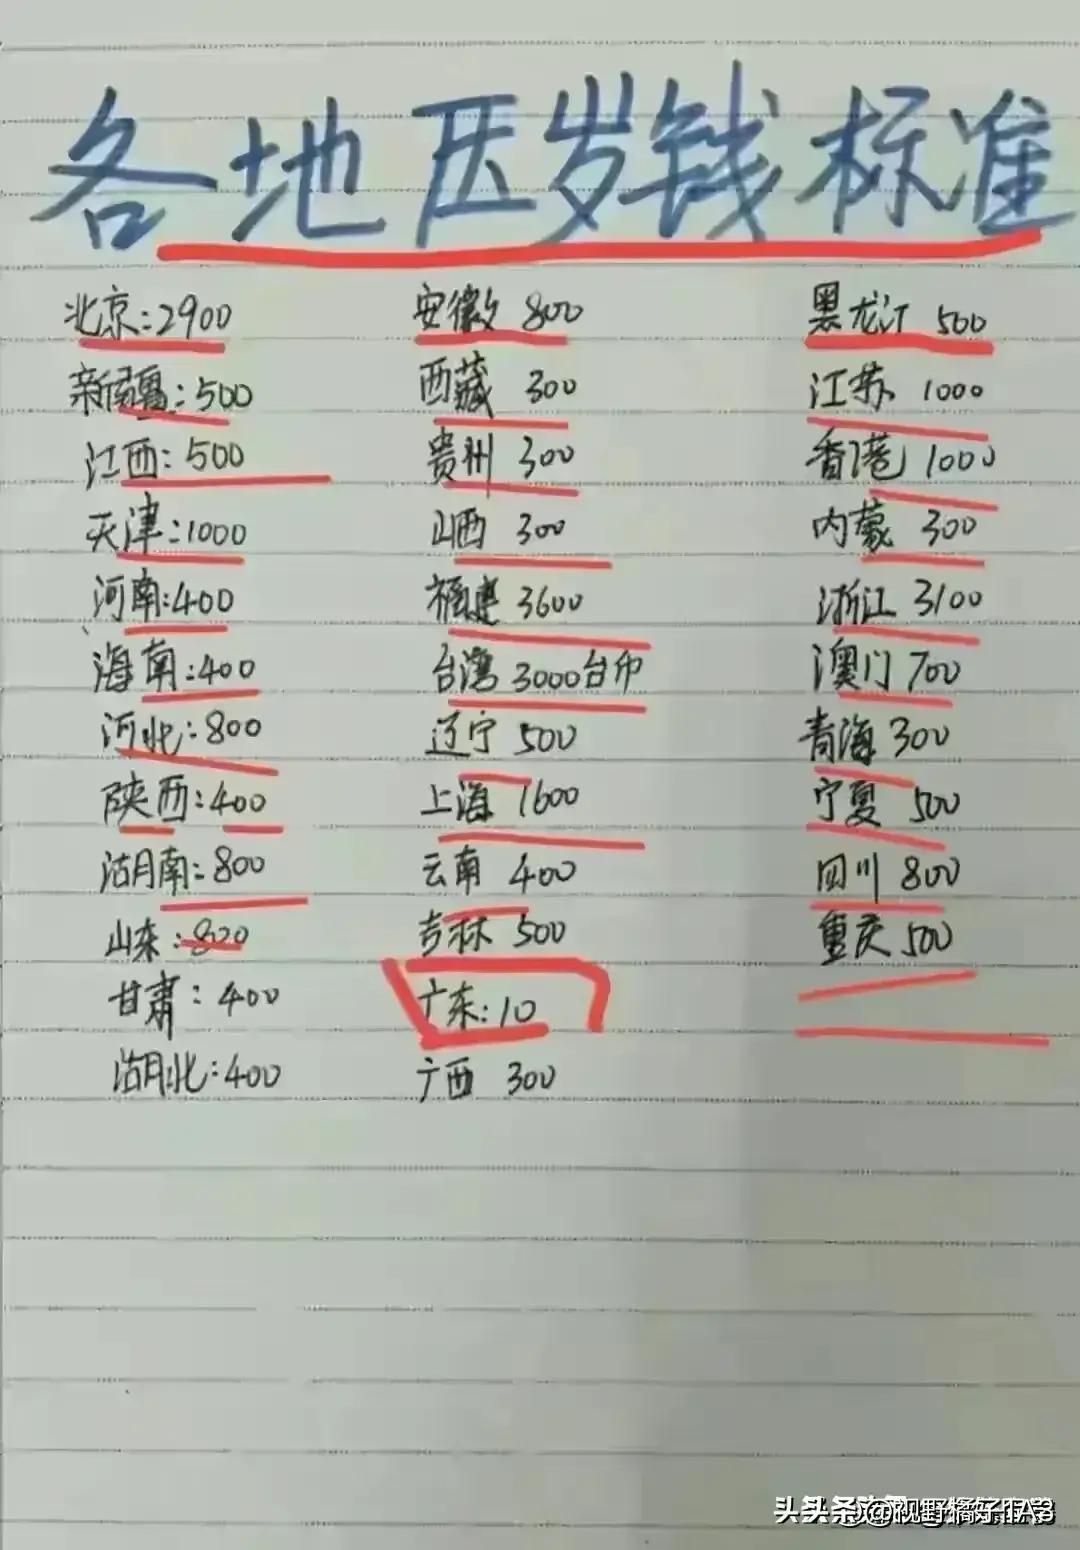 各地压岁钱标准
北京:2900
新疆:500
江西:500
天津:1000
河南:400
海南:400
河北:800
陕西:400
湖南:800
山东:800
甘肃:400
湖北:400
安徽 800
西藏 300
贵州 300
山西 300
福建 3600
台湾 3000台币
辽宁 500
上海 1600
云南 400
吉林 500
广东:10
广西 300
黑龙江 500
江苏 1000
香港 1000
内蒙 300
浙江 3100
澳门 700
青海 300
宁夏 500
四川 800
重庆 500
头条 @视野橘子IA3